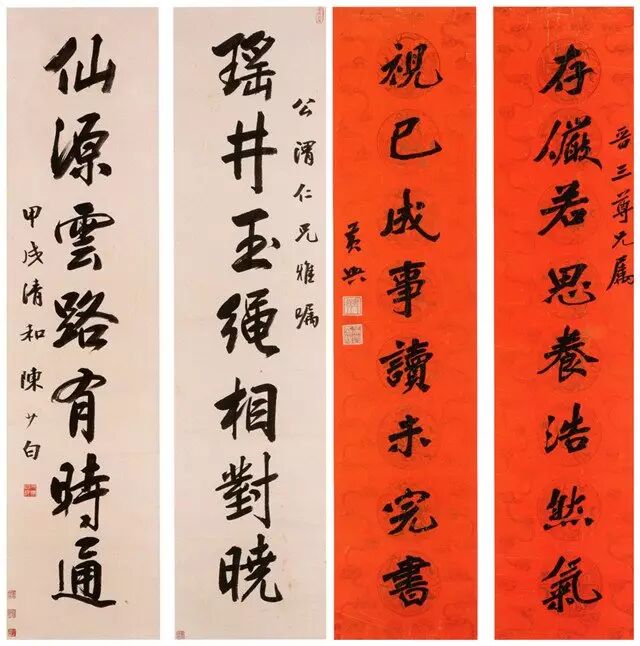 晋三尊兄属
存儼若思養浩然氣
視已成事讀未完書
黄興
公渭仁兄雅嘱
瑤井玉繩相對曉
仙源雲路有時通
甲戌清和陳少白